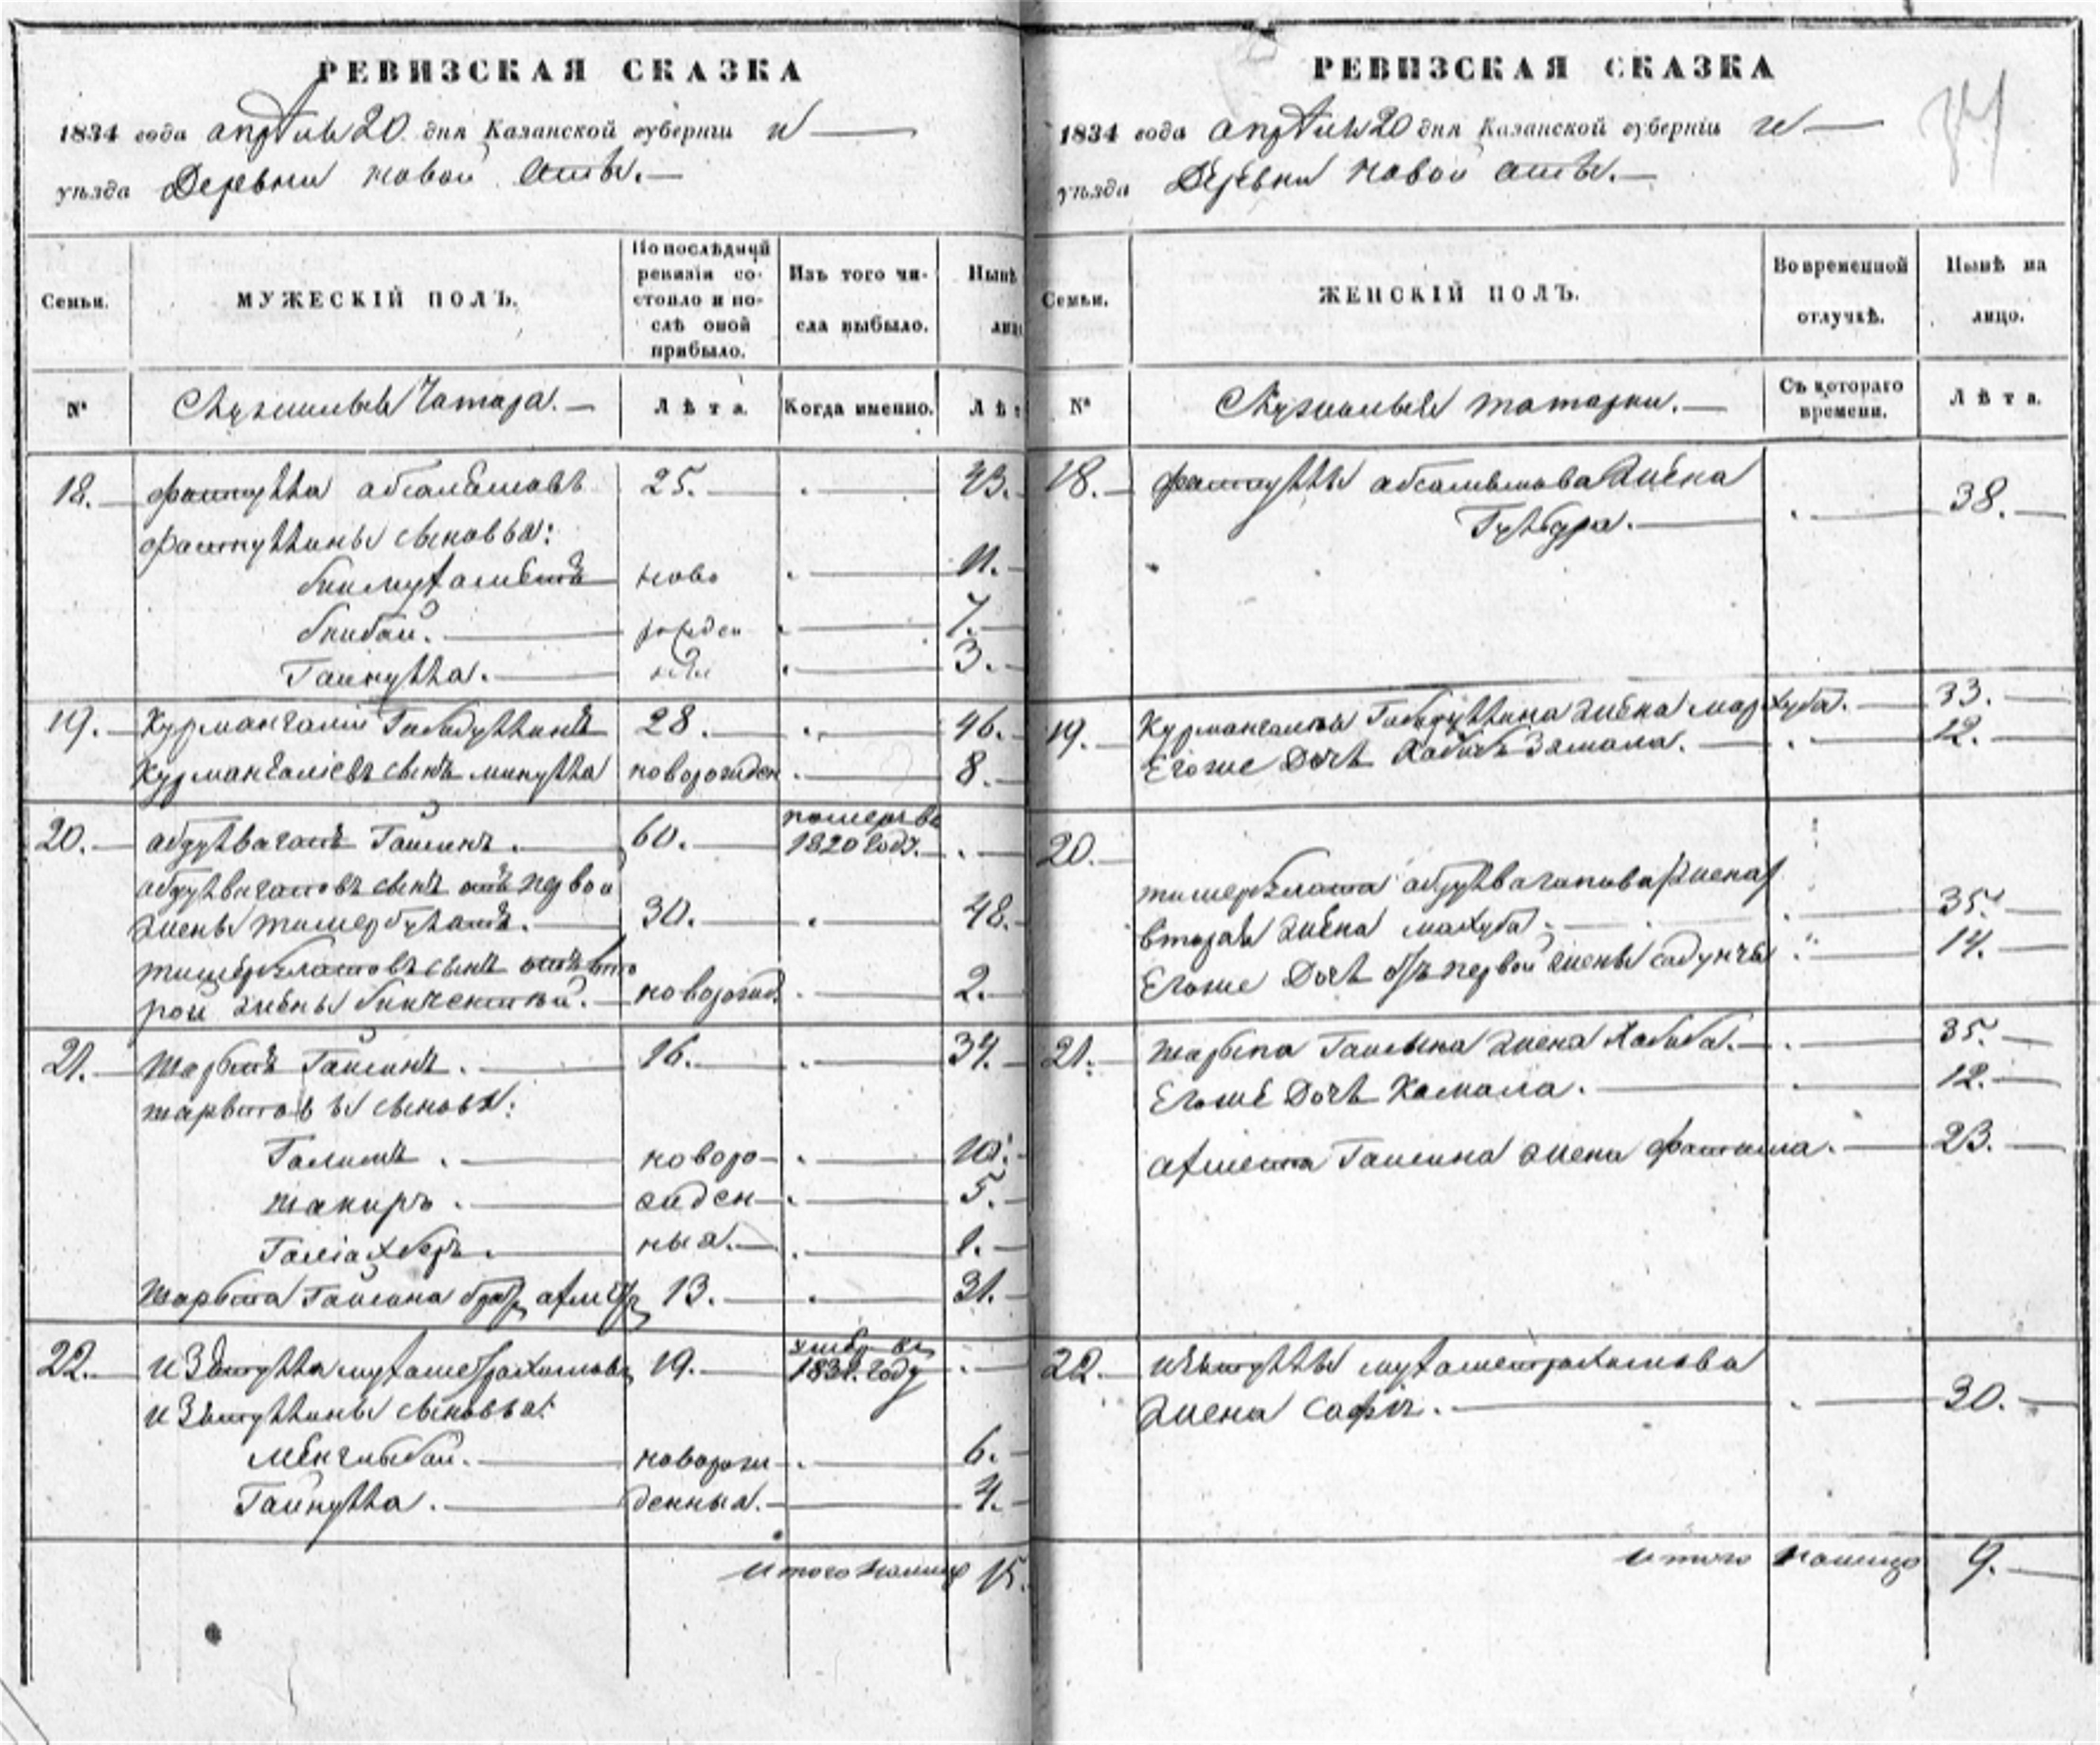 РЕВИЗСКАЯ СКАЗКА
1834 года апреля 20 дня Казанской губерніи и
уѣзда Деревни новой
Семьи.
МУЖЕСКІЙ ПОЛЪ.
По послѣдней ревизіи состояло и послѣ оной прибыло.
Изъ того числа выбыло.
Нынѣ
лицо
№
Служилыя Татара.
Лѣта.
Когда именно.
Лѣт
18. Фаткулла абсалямовъ 25. 43.
Фаткуллины сыновья:
бикмухаметъ ново 11.
бикбай. рожден 7.
Гайнулла. ныя 3.
19. Курмангали Габидуллинъ 28. 46.
Курмангаліевъ сынъ минулла новорожден 8.
20. абдулвагапъ Гайсинъ. 60. померъ въ 1820 году.
абдулвагаповъ сынъ отъ первои
жены тимербулатъ. 30. 48.
тимербулатовъ сынъ отъ вто
рой жены новорожд. 2.
21. Шарыпъ Гайсинъ. 16. 34.
шарыповы сыновья:
Галимъ. новоро 10.
шакиръ. жден 5.
ныя. 1.
Шарыпа Гайсина братъ ахметъ 13. 31.
22. Изятулла мухаметрахимовъ 19. умеръ въ 1831. году
Изятуллины сыновья:
Менглыбай. новорож 6.
Гайнулла. денныя. 4.
итого налицо 15.
РЕВИЗСКАЯ СКАЗКА
1834 года апреля 20 дня Казанской губерніи и
уѣзда Деревни новой
Семьи.
ЖЕНСКІЙ ПОЛЪ.
Во временной отлучкѣ.
Нынѣ на лицо.
№
Служилыя татарки.
Съ котораго времени.
Лѣта.
18. Фаткуллы абсалямова жена
38.
19. Курмангалия Габидуллина жена махуба. 33.
Егоже дочь 12.
20.
тимербулата абдулвагапова жена
вторая жена махуба. 35.
Егоже дочь отъ первой жены 14.
21. шарыпа Гайсина жена хабиба. 35.
Егоже дочь Камала. 12.
ахмета Гайсина жена фатима. 23.
22. Изятуллы мухаметрахимова
жена 30.
итого налицо 9.